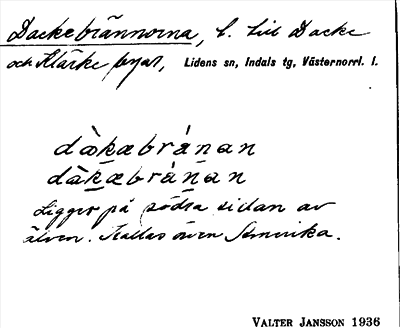 Dackebrännorna, b. till Dacke
och Klärke byar, Lidens sn, Indals tg, Västernorrl. l.
dàkæbránan
dàkæbránan
Ligger på södra sidan av
älven. Kallas även Amerika.
VALTER JANSSON 1936